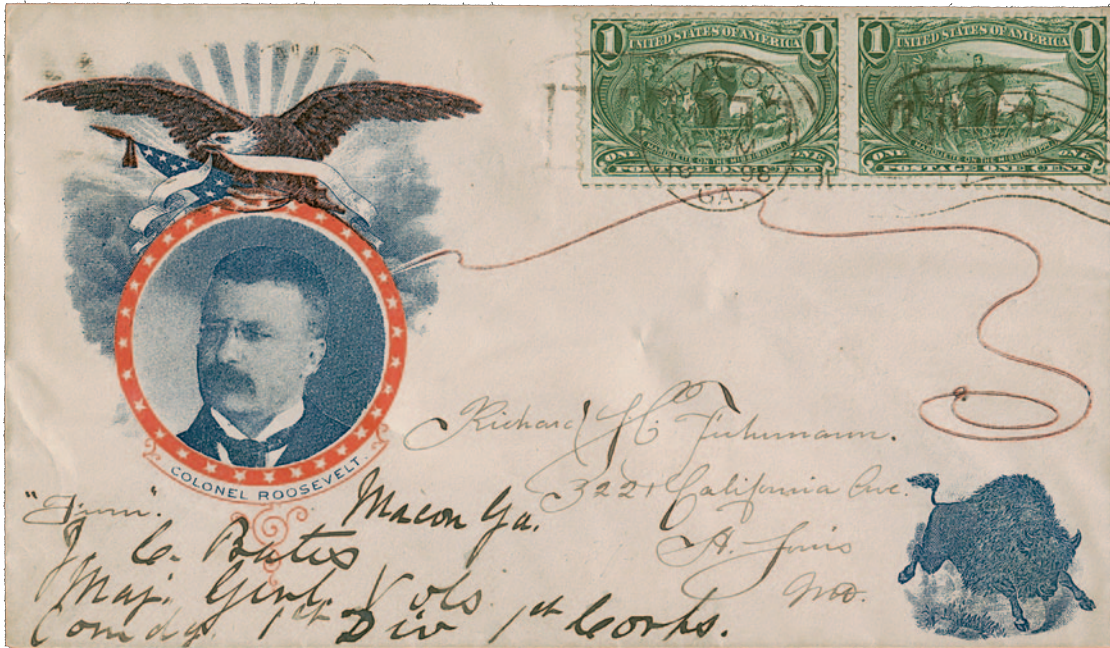 1 UNITED STATES OF AMERICA 1
MARQUETTE ON THE MISSISSIPPI
ONE ONE
POSTAGE ONE CENT
1 UNITED STATES OF AMERICA 1
MARQUETTE ON THE MISSISSIPPI
ONE ONE
POSTAGE ONE CENT
MACON
98
GA.
COLONEL ROOSEVELT.
Richard H.
3221 California Ave.
St. Louis
Mo.
"From".
Macon Ga.
J. C. Bates
Maj. Genl. Vols.
Comdg. 1st Div 1st Corps.